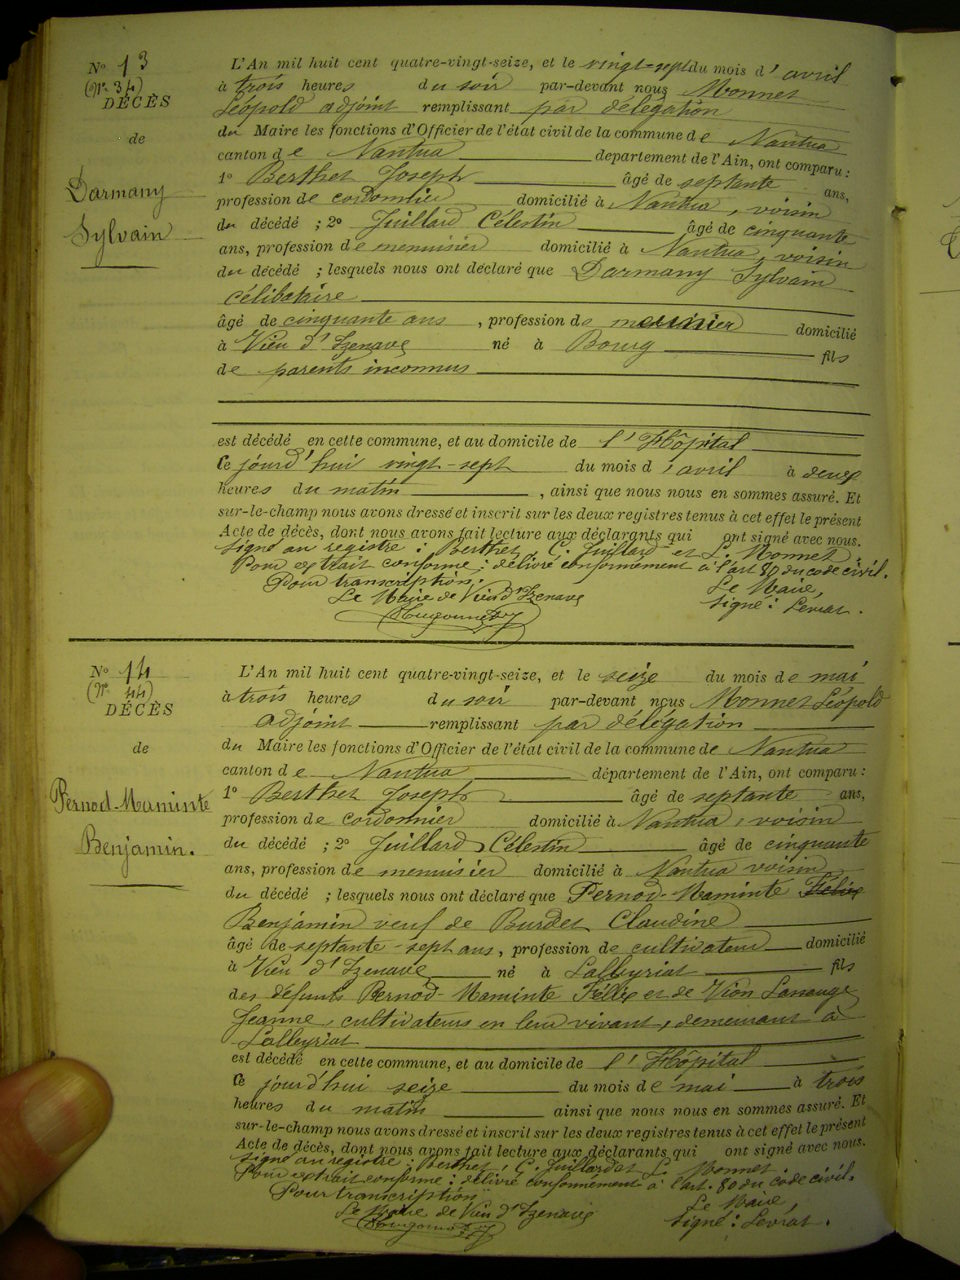 N° 13
(N° 34)
DÉCÈS
de
Darmany
Sylvain
L'An mil huit cent quatre-vingt-seize, et le vingt-sept du mois d'avril
à trois heures du soir par-devant nous Monnet
Léopold adjoint remplissant par délégation
du Maire les fonctions d'Officier de l'état civil de la commune de Nantua
canton de Nantua departement de l'Ain, ont comparu :
1° Berthet Joseph âgé de septante ans,
profession de cordonnier domicilié à Nantua, voisin
du décédé ; 2° Juillard Célestin âgé de cinquante
ans, profession de menuisier domicilié à Nantua, voisin
du décédé ; lesquels nous ont déclaré que Darmany Sylvain
célibataire
âgé de cinquante ans , profession de domicilié
à Vieu d'Izenave né à Bourg fils
de parents inconnus
est décédé en cette commune, et au domicile de l'Hôpital
Ce jourd'hui vingt-sept du mois d'avril à deux
heures du matin , ainsi que nous nous en sommes assuré. Et
sur-le-champ nous avons dressé et inscrit sur les deux registres tenus à cet effet le présent
Acte de décès, dont nous avons fait lecture aux déclarants qui ont signé avec nous.
Signé au registre : Berthet, C. Juillard et L. Monnet.
Pour extrait conforme : délivré conformément à l'art 80 du code civil.
Pour transcription : Le Maire,
Le Maire de Vieu d'Izenave Signé : Levrat.
N° 14
(N° 44)
DÉCÈS
de
Pernod-Maminte
Benjamin.
L'An mil huit cent quatre-vingt-seize, et le seize du mois de mai
à trois heures du soir par-devant nous Monnet Léopold
adjoint remplissant par délégation
du Maire les fonctions d'Officier de l'état civil de la commune de Nantua
canton de Nantua département de l'Ain, ont comparu :
1° Berthet Joseph âgé de septante ans,
profession de cordonnier domicilié à Nantua, voisin
du décédé ; 2° Juillard Célestin âgé de cinquante
ans, profession de menuisier domicilié à Nantua voisin
du décédé ; lesquels nous ont déclaré que Pernod-Maminte Félix
Benjamin veuf de Burdet Claudine
âgé de septante-sept ans, profession de cultivateur domicilié
à Vieu d'Izenave né à Lalleyriat fils
des défunts Pernod-Maminte Félix et de Vion Lanauge
Jeanne, cultivateurs en leur vivant, demeurant à
Lalleyriat
est décédé en cette commune, et au domicile de l'Hôpital
Ce jourd'hui seize du mois de mai à trois
heures du matin ainsi que nous nous en sommes assuré. Et
sur-le-champ nous avons dressé et inscrit sur les deux registres tenus à cet effet le présent
Acte de décès, dont nous avons fait lecture aux déclarants qui ont signé avec nous.
Signé au registre : Berthet, C. Juillard et L. Monnet.
Pour extrait conforme : délivré conformément à l'art. 80 du code civil.
Pour transcription Le Maire
Le Maire de Vieu d'Izenave Signé : Levrat.